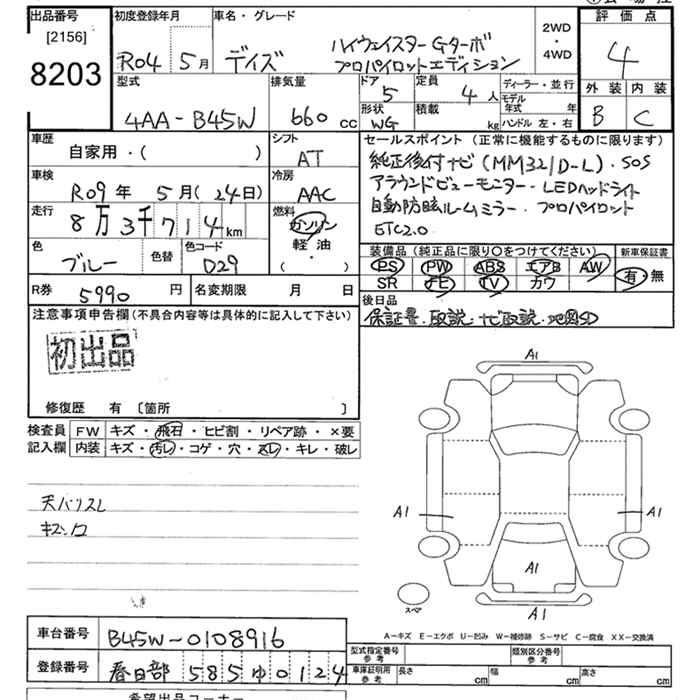 出品番号
[2156]
8203
初度登録年月
R04 5月
車名・グレード
デイズ
ハイウェイスターGターボ
プロパイロットエディション
2WD
・
4WD
評価点
4
外装 内装
B C
型式
4AA-B45W
排気量
660 cc
ドア
5
定員
4 人
形状
WG
積載
kg
ディーラー・並行
モデル
年式 年
ハンドル 左・右
車歴
自家用・( )
シフト
AT
車検
R09年 5月(24日)
冷房
AAC
走行
8万3千714km
燃料
ガソリン
軽油
( ・ )
色
ブルー
色替
色コード
D29
R券
5990 円
名変期限 月 日
セールスポイント(正常に機能するものに限ります)
純正後付ナビ(MM321D-L)・SOS
アラウンドビューモニター・LEDヘッドライト
自動防眩ルームミラー・プロパイロット
ETC2.0
装備品(純正品に限り〇をつけてください)
PS PW ABS エアB AW
SR ナビ TV カワ
新車保証書
有・無
後日品
保証書・取説・ナビ取説・地図SD
注意事項申告欄(不具合内容等は具体的に記入して下さい)
初出品
修復歴 有 〔箇所 〕
検査員
記入欄
FW キズ・飛石・ヒビ割・リペア跡・×要
内装 キズ・汚レ・コゲ・穴・返レ・キレ・破レ
A1
A1
A1
A1
A1
スペア
A-キズ E-エクボ U-凹み W-補修跡 S-サビ C-腐食 XX-交換済
車台番号
B45W-0108916
登録番号
春日部 585 ゆ 0124
型式指定番号
参考
類別区分番号
参考
車庫証明用
参考
長さ cm 幅 cm 高さ cm
希望出品コーナー